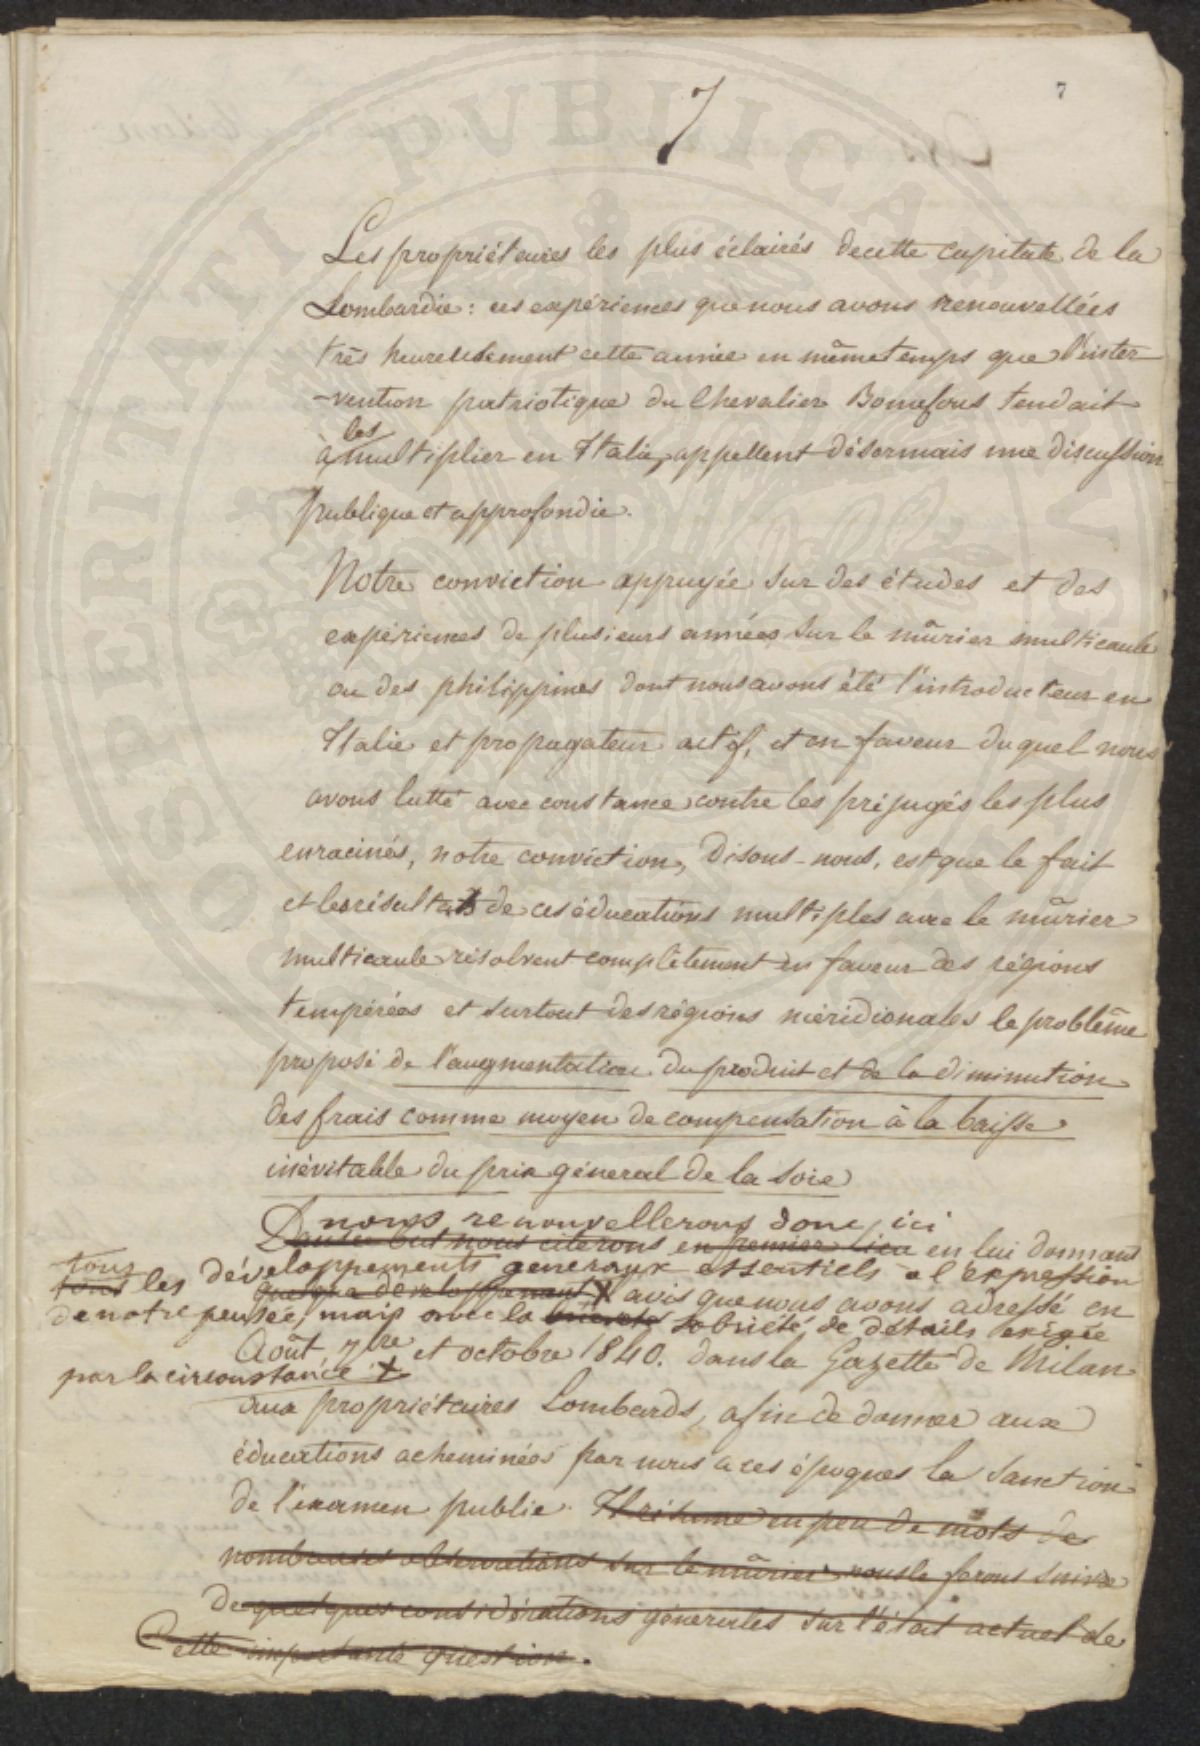 7
7
Les propriétaires les plus éclairés de cette capitale de la
Lombardie : ces expériences que nous avons renouvellées
très heureusement cette année en même temps que l'inter
-vention patriotique du Chevalier Bonafous tendait
à les multiplier en Italie, appellent désormais une discussion
publique et approfondie.
Notre conviction appuyée sur des études et des
expériences de plusieurs années sur le mûrier multicaule
ou des philippines dont nous avons été l'introducteur en
Italie et propagateur actif, et en faveur duquel nous
avons lutté avec constance contre les préjugés les plus
enracinés, notre conviction, disons-nous, est que le fait
et les résultats de ces éducations multiples avec le mûrier
multicaule résolvent complètement en faveur des régions
tempérées et surtout des régions méridionales le problême
proposé de l'augmentation du produit et de la diminution
des frais comme moyen de compensation à la baisse
inévitable du prix géneral de la soie
nous renouvellerons donc ici
Dans ce but nous citerons en premier lieu en lui donnant
tous
tous les développements generaux essentiels a l'expression
quelque développement X avis que nous avons adressé en
de notre pensée, mais avec la sobriété de détails exigée
Août 7bre et octobre 1840. dans la Gazette de Milan
par la circonstance X
aux propriétaires Lombards, afin de donner aux
éducations acheminées par nous a ces époques la sanction
de l'examen public. Il résume en peu de mots de
nombreuses observations sur le mûrier nous le ferons suivre
De quelques considérations génerales sur l'état actuel de
Cette importante question.